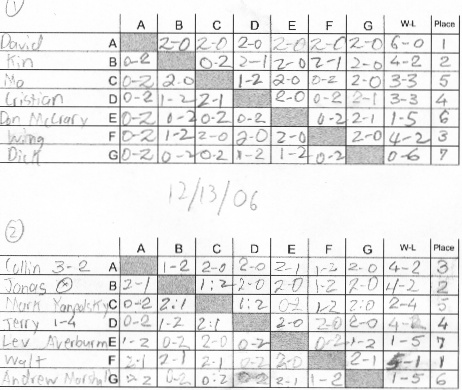 ①
A B C D E F G W-L Place
David A 2-0 2-0 2-0 2-0 2-0 2-0 6-0 1
Kin B 0-2 0-2 2-1 2-0 2-1 2-0 4-2 2
Mo C 0-2 2-0 1-2 2-0 0-2 2-0 3-3 5
Cristian D 0-2 1-2 2-1 2-0 0-2 2-1 3-3 4
Don McCrary E 0-2 0-2 0-2 0-2 0-2 2-1 1-5 6
Wing F 0-2 1-2 2-0 2-0 2-0 2-0 4-2 3
Dick G 0-2 0-2 0-2 1-2 1-2 0-2 0-6 7
12/13/06
②
A B C D E F G W-L Place
Collin 3-2 A 1-2 2-0 2-0 2-1 1-2 2-0 4-2 3
Jonas B 2-1 1:2 2-0 2-0 1-2 2-0 4-2 2
Mark C 0-2 2:1 1:2 0-2 1-2 2:0 2-4 5
Jerry 1-4 D 0-2 1-2 2:1 2-0 2-0 4-2 4
Lev E 1-2 0-2 2-0 0-2 0-2 1-2 1-5 7
Walt F 2-1 2-1 2-1 0-2 2-0 2-1 5-1 1
Andrew G 0-2 0:2 0-2 2-1 1-2 1-5 6